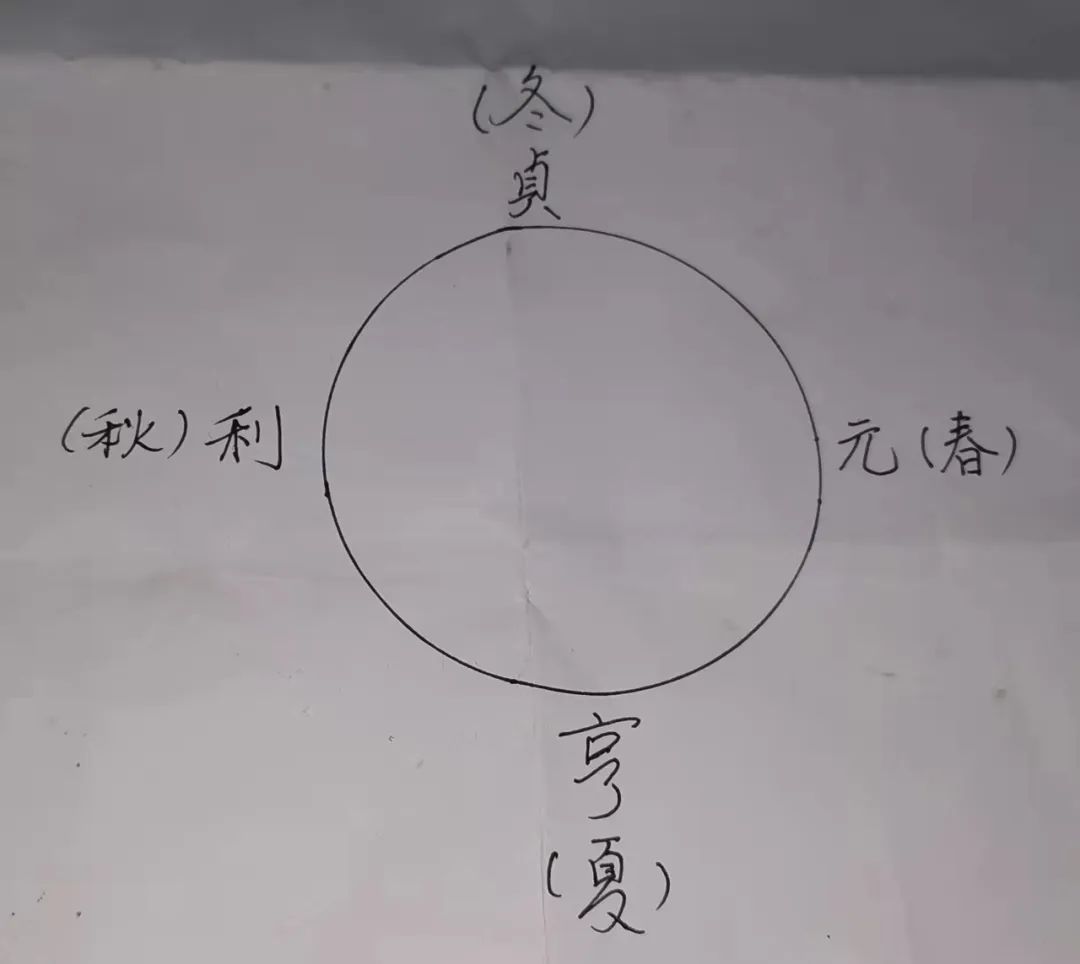 (冬)
貞
(秋)利
元(春)
亨
(夏)